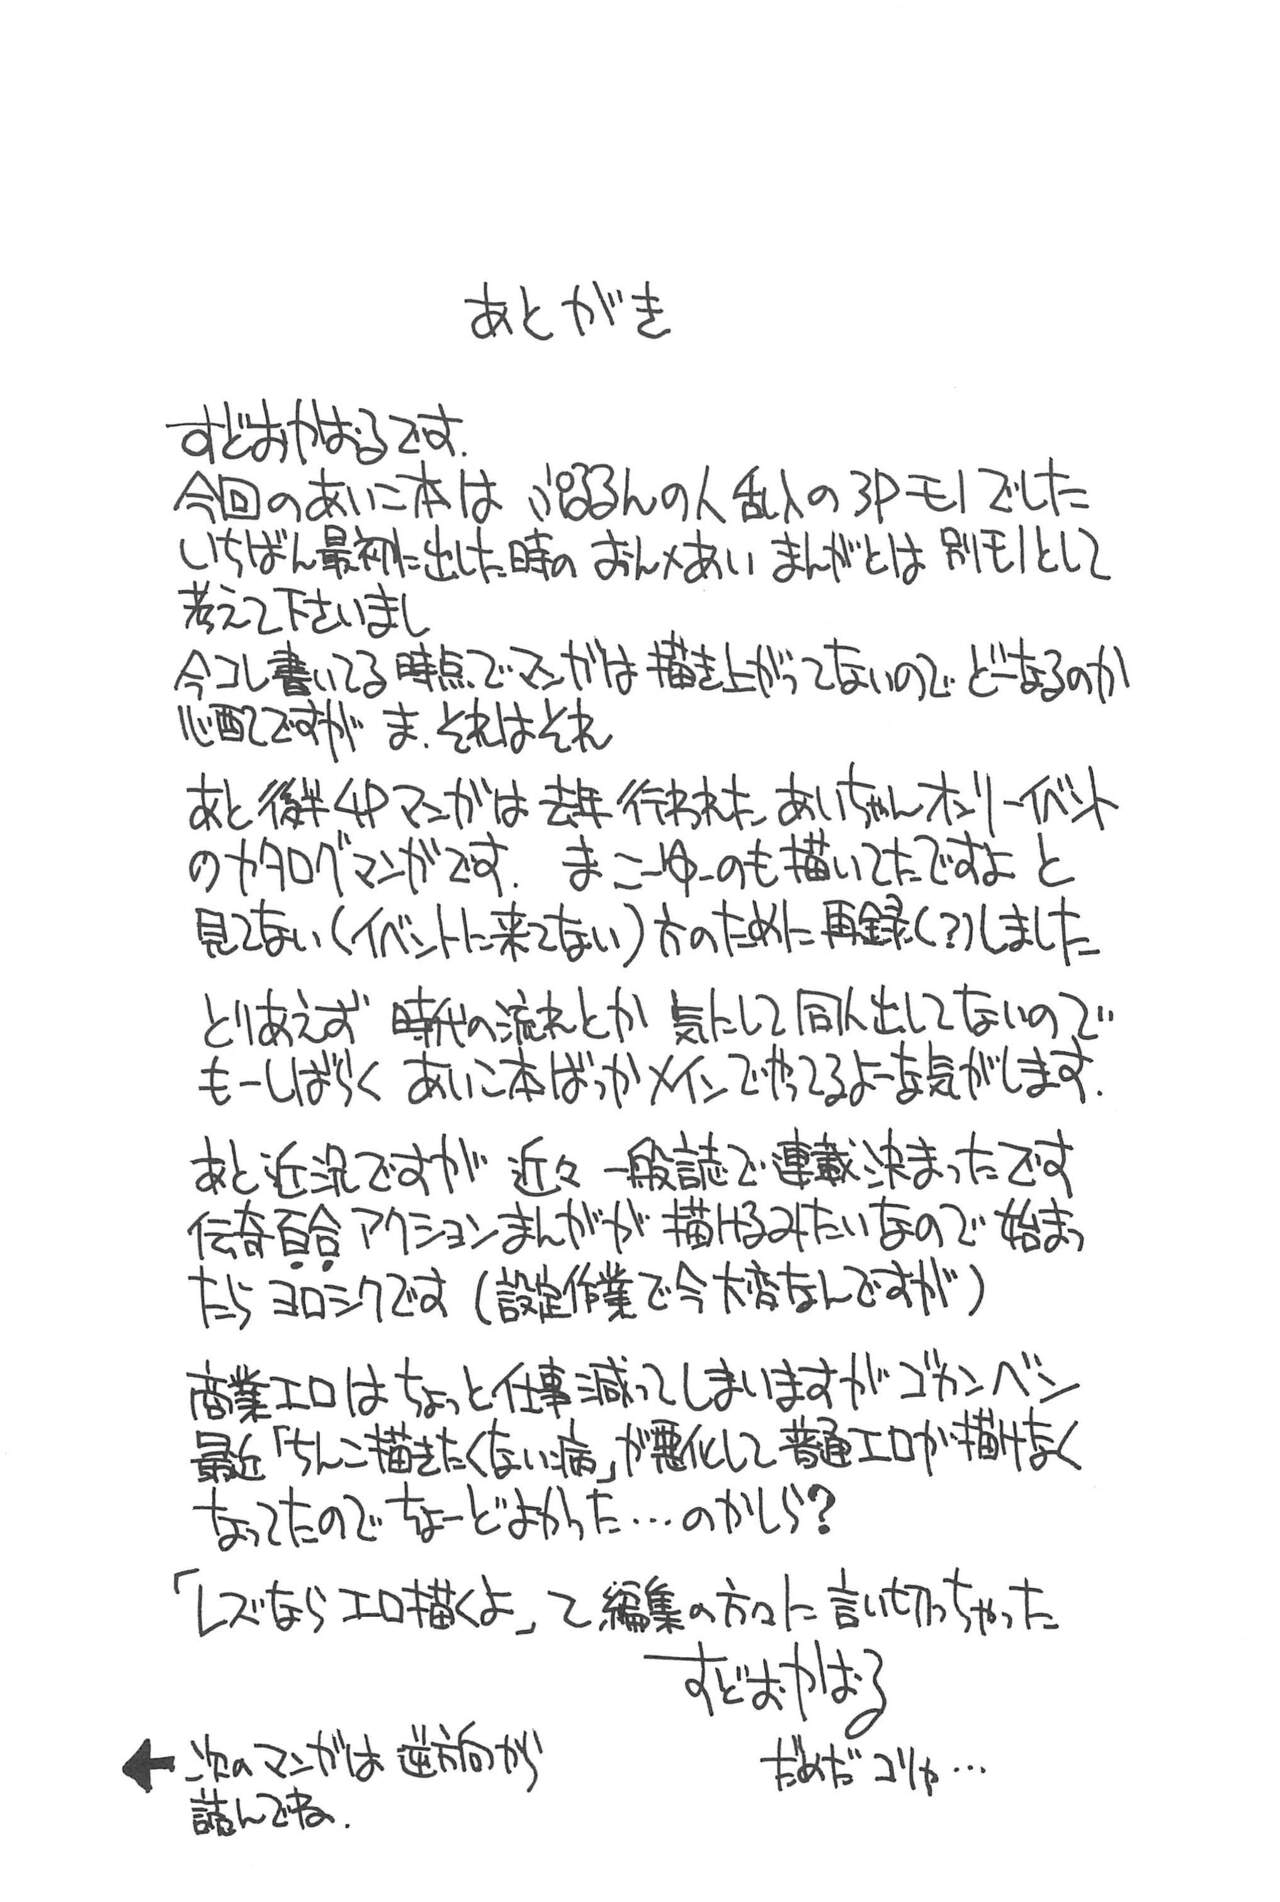 あとがき
すどおかおるです.
今回のあいこ本は ぷるるんの人乱入の3Pモノでした
いちばん最初に出した時の おんxあい まんがとは 別モノとして
考えて下さいまし
今コレ書いてる時点でマンガは描き上がってないので どーなるのか
心配ですが ま.それはそれ
あと後半4Pマンガは去年行われた あいちゃんオンリーイベント
のカタログマンガです. まこーゆーのも描いてたですよ と
見てない(イベントに来てない)方のために再録(?)しました
とりあえず 時代の流れとか 気にして同人出してないので
もーしばらく あいこ本ばっかメインでやってるよーな気がします.
あと近況ですが 近々 一般誌で連載決まったです
伝奇百合アクションまんがが 描けるみたいなので始まっ
たら ヨロシクです (設定作業で今大変なんですが)
商業エロはちょっと仕事減ってしまいますがゴカンベン
最近「ちんこ描きたくない病」が悪化して普通エロが描けなく
なってたのでちょーどよかった…のかしら?
「レズなら エロ描くよ」て編集の方々に言い切っちゃった
すどおかおる
だめだ コリャ…
← 次のマンガは逆方向から
読んでね.